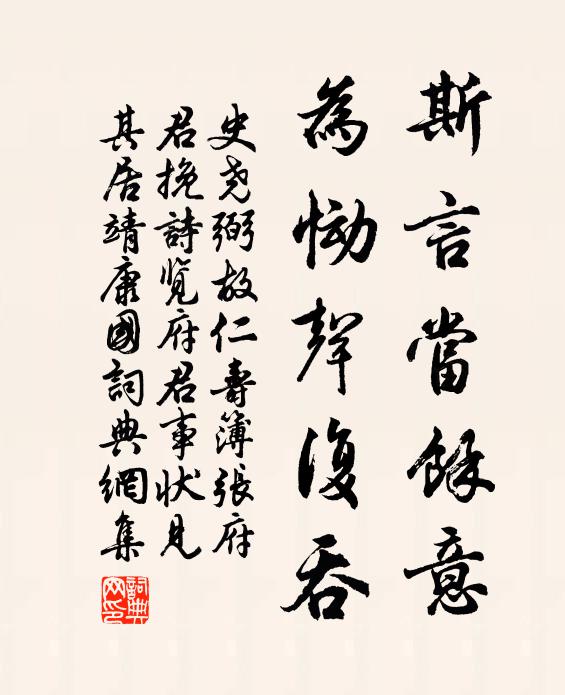 斯言當餘意
為慟聲復吞
史堯弼故仁壽簿張府
君挽詩覽府君事狀見
其居靖康國詞典網集
詞典網印